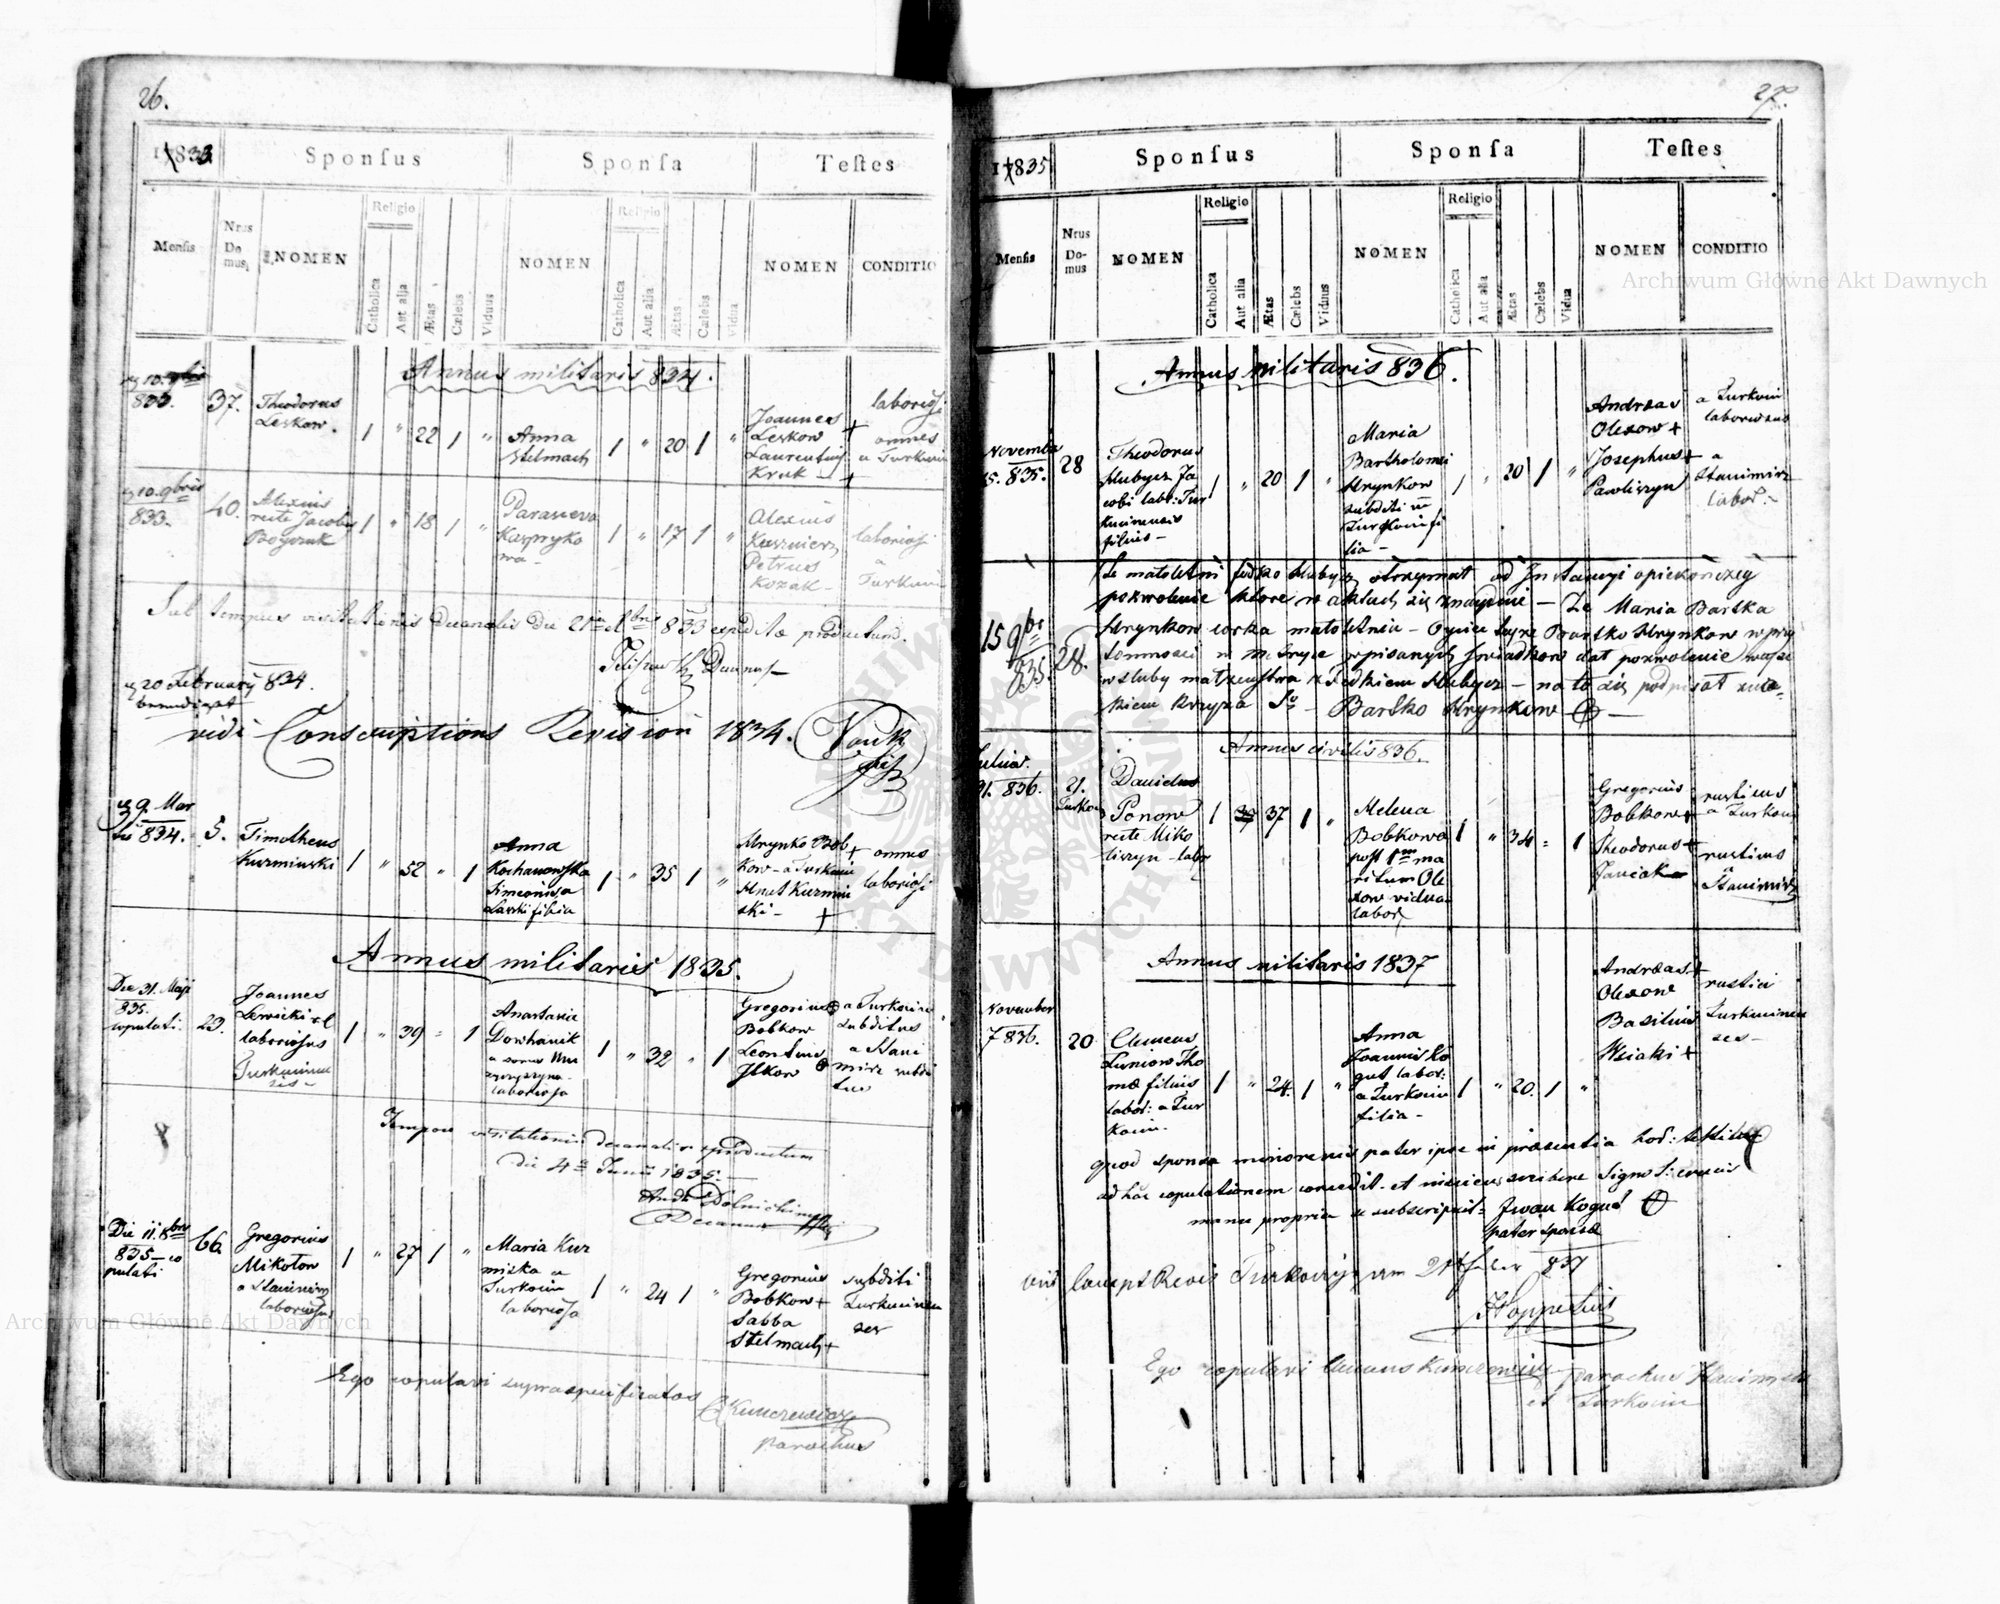 26.
1833
Sponſus
Sponſa
Teſtes
Menſis
Nrus Domus
NOMEN
Religio
Catholica
Aut alia
Ætas
Cælebs
Viduus
NOMEN
Religio
Catholica
Aut alia
Ætas
Cælebs
Vidua
NOMEN
CONDITIO
Annus militaris 834.
833.
37.
Theodorus
Leskow.
1 " 22 1 "
Anna
Stelmach
1 " 20 1 "
Joannes +
Leskow
Laurentius
Kruk +
laboriosi
omnes
a Turkuin
10. 9bris
833.
40.
Alexius
recte Jacobus
1 " 18 1 "
Parasceva
Kaspryko
wa
1 " 17 1 "
Alexius
Kusznierz
Petrus
Kozak
laboriosi
a
Turkuin
Sub tempus visitationis decanalis die 21a 8bris 833 expedite productum.
20 February 834.
vidi Conscriptions Revision 1834.
9. Mar
tii 834.
5.
Timotheus
Kuzminski
1 " 52 " 1
Anna
Kochanowska
Simeonis
filia
1 " 35 1 "
Hrynko Bob +
kow a Turkuin
Hnat Kuzmin
ski +
omnes
laboriosi
Annus militaris 1835.
Die 31. Maji
835.
copulati.
23.
Joannes
Lewicki
laboriosus
Turkuinen
sis
1 " 39 " 1
Anastasia
Dowhanik
laboriosa
1 " 32 " 1
Gregorius
Bobkow
Leontius
Ilkow
a Turkuin
subditus
a Stani
mirz subdi
tus
Tempore visitationis decanalis productum
die 4a Junii 1835.
Decanus
Die 11. 8bris
835 co
pulati
66
Gregorius
Mikolow
a Stanimirz
laboriosus
1 " 27 1 "
Maria Kuz
miska a
Turkuin
laboriosa
1 " 24 1 "
Gregorius
Bobkow +
Sabba
Stelmach +
subditi
Turkuinen
ses
Ego copulavi supraspecificatos
Kunczewicz
parochus
27.
1835
Sponſus
Sponſa
Teſtes
Menſis
Nrus Domus
NOMEN
Religio
Catholica
Aut alia
Ætas
Cælebs
Viduus
NOMEN
Religio
Catholica
Aut alia
Ætas
Cælebs
Vidua
NOMEN
CONDITIO
Annus militaris 836.
November
15. 835.
28
Theodorus
Hubycz Ja
cobi labr: Tur
kuinensis
filius
1 " 20 1 "
Maria
Bartholomei
Hrynkow
subditi
Turkuin fi
lia
1 " 20 1 "
Andreas
Olexow +
Josephus +
Pawliszyn
a Turkuin
laboriosus
a
Stanimirz
labor.
15 9br
835.
28.
Że małoletni Fedko Hubycz otrzymał od Instancyi opiekończey
pozwolenie ktore w aktach się znayduie — Że Maria Bartka
Hrynkow corka małoletnia — Oyciec teyże Bartko Hrynkow w przy
tomnosci w Metryce wpisanych Swiadkow dał pozwolenie wejść
w sluby małzenstwa z Fedkiem Hubycz — na to się podpisał zna-
kiem krzyża Sgo — Bartko Hrynkow
Annus civilis 836.
Julius
31. 836.
21.
Davidus
Panow
recte Miko
liszyn labor
1 37 37 1 "
Helena
Bobkowa
post 1mum ma
ritum Ole
xow vidua
labor
1 " 34 " 1
Gregorius
Bobkow +
Theodorus +
Janiak
rusticus
a Turkuin
rusticus
Stanimirz
Annus militaris 1837
November
7 836.
20
Clemens
Luniow Tho
mæ filius
labor: a Tur
kuin.
1 " 24. 1 "
Anna
Joannis Ko
gut labor:
a Turkuin
filia
1 " 20. 1 "
Andreas +
Olexow
Basilius
Hsiaki +
rustici
Turkuinen
ses
quod sponsa minorenis pater ipse in præsentia hor: testium
ad hac copulationem concedit et nescius scribere Signo S: crucis
manu propria se subscripsit Iwan Kogut
pater sponsæ
Ego copulavi Kunczewicz parochus Stanimirz
et Turkuin
Archiwum Główne Akt Dawnych
Archiwum Główne Akt Dawnych